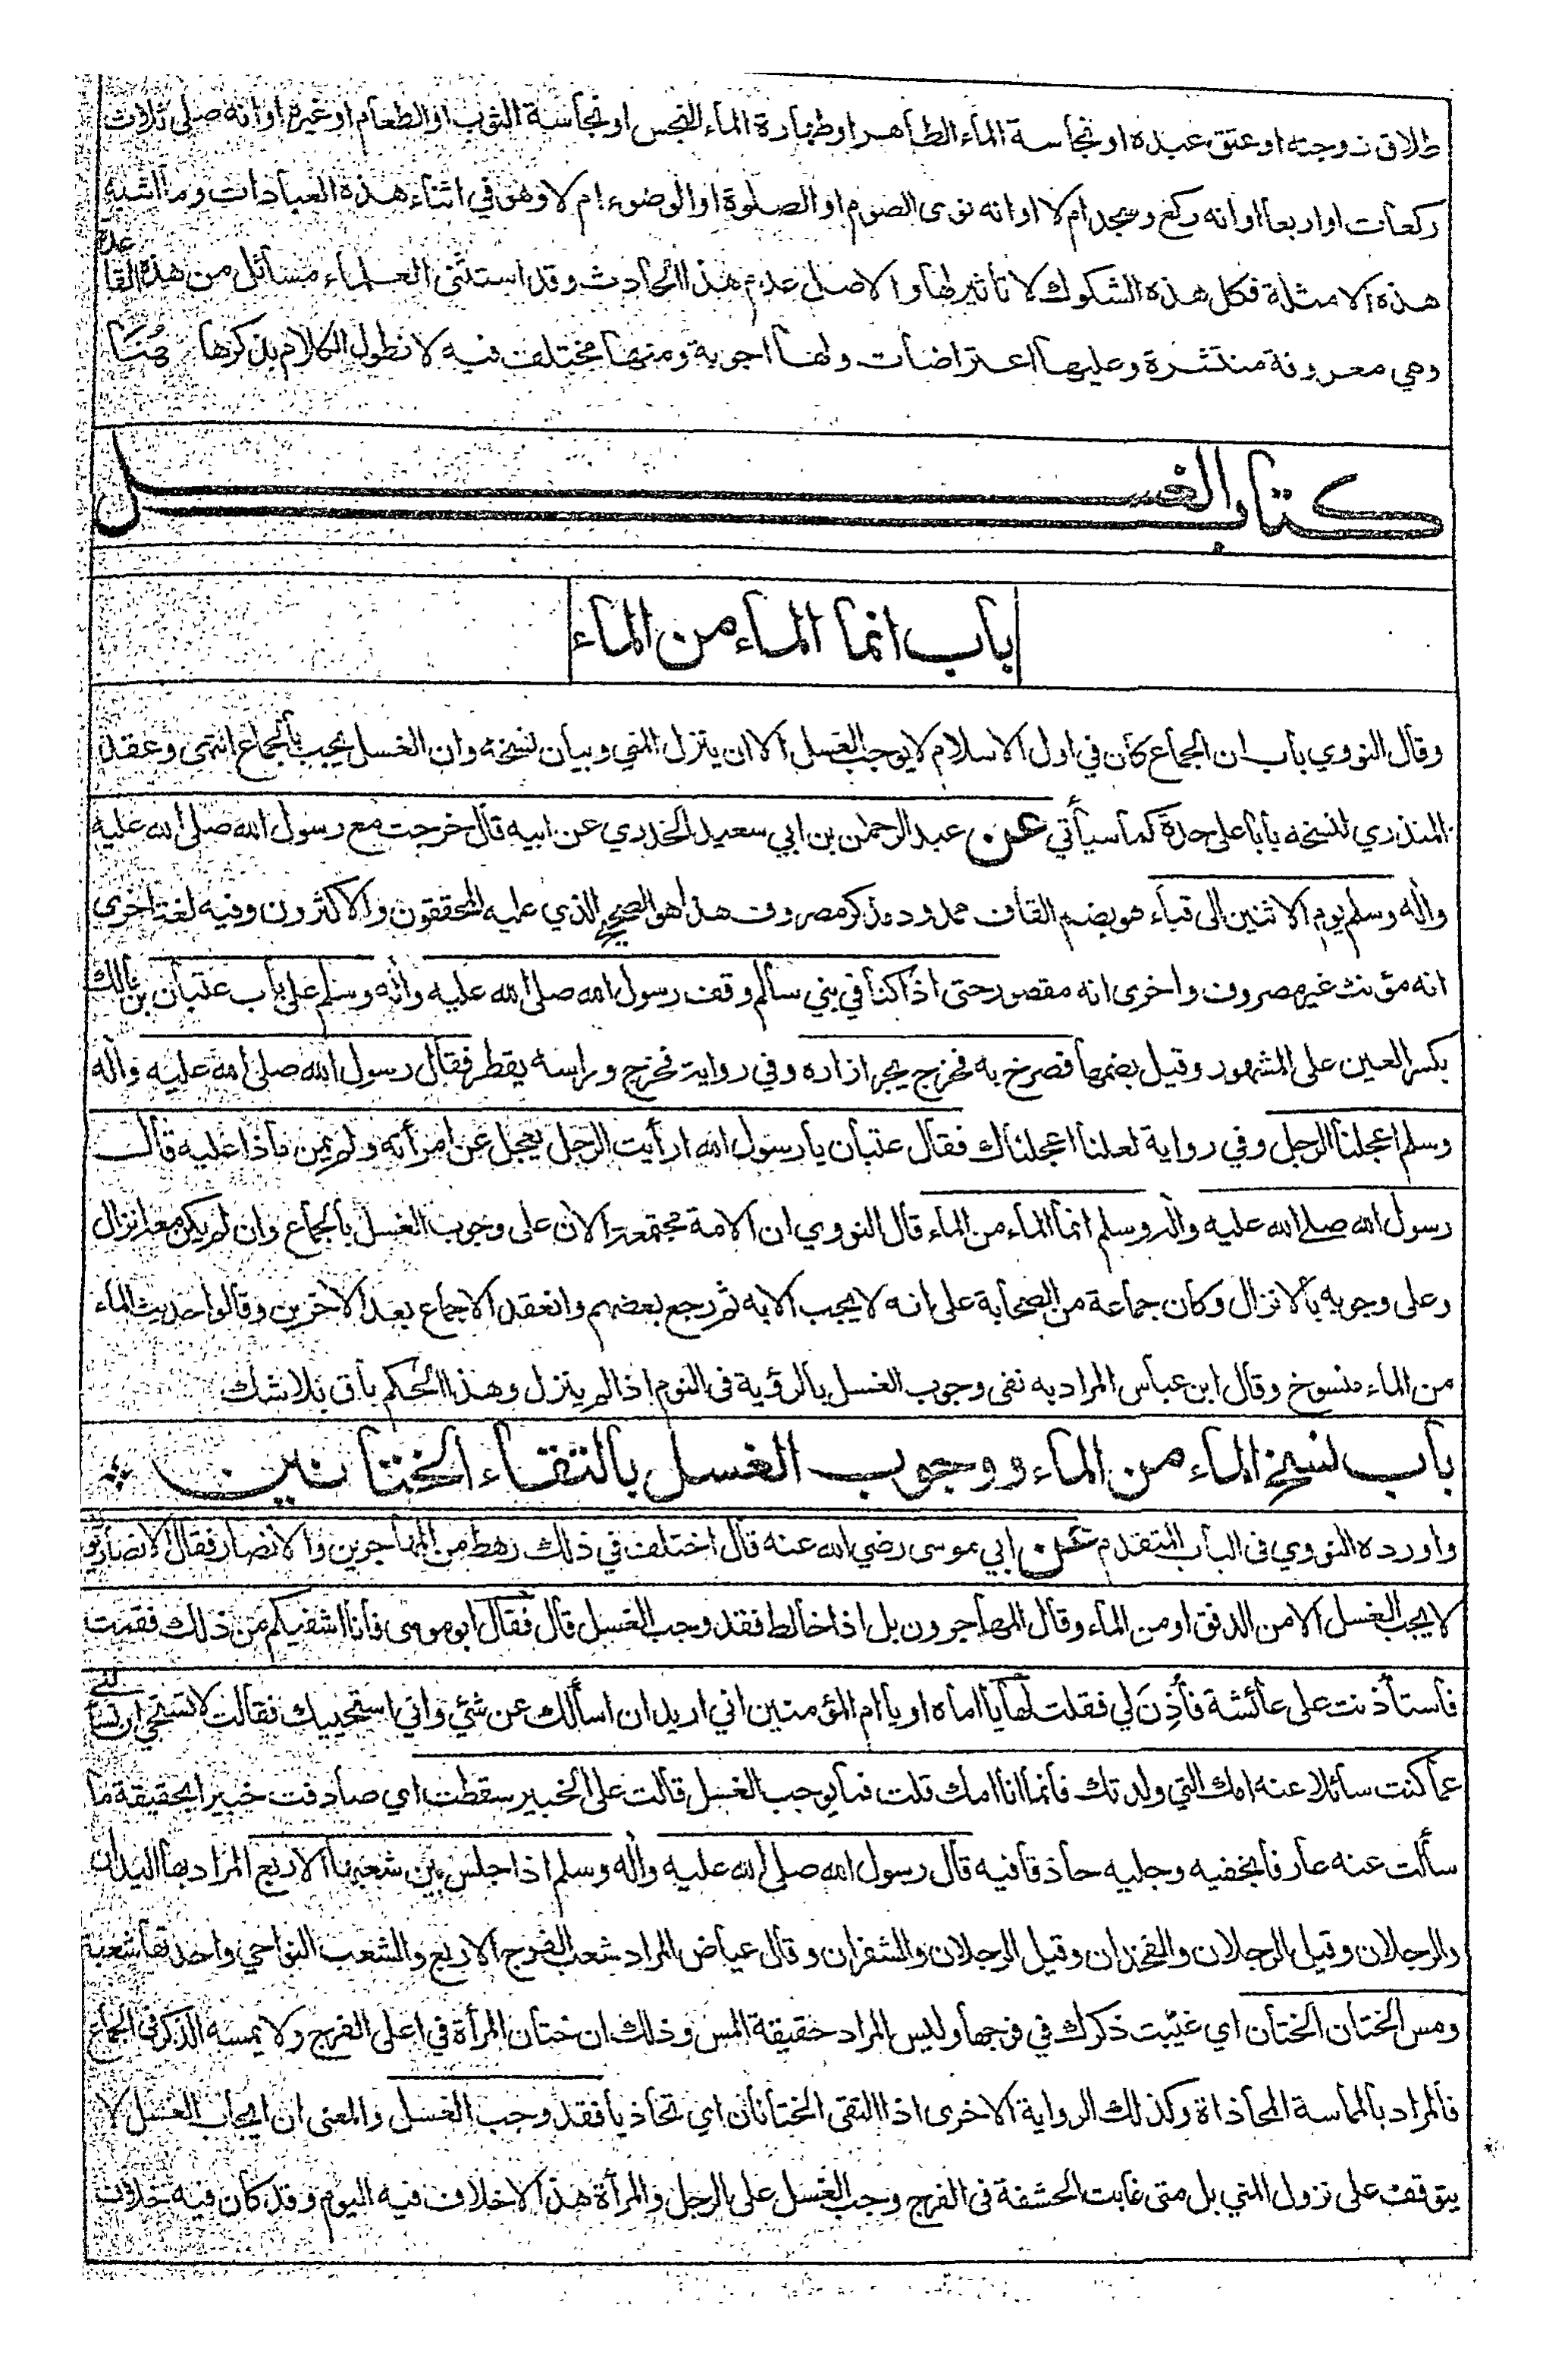 طلاق زوجته او عتق عبده او نجاسة الماء الطاهر او طهارة الماء النجس او نجاسة الثوب او الطعام او غيره او انه صلى ثلاث
ركعات او اربعا او انه ركع وسجد ام لا او انه نوى الصوم او الصلوة او الوضوء ام لا وهو في اثناء هذه العبادات وما اشبه
هذه الامثلة فكل هذه الشكوك لا تاثير لها والاصل عدم هذا الحادث وقد استثنى العلماء مسائل من هذه القاعدة
وهي معروفة منتشرة وعليها اعتراضات ولها اجوبة ومنها مختلف فيه لا نطول الكلام بذكرها هُنَا
كتاب الغسل
باب انما الماء من الماء
وقال النووي باب ان الجماع كان في اول الاسلام لا يوجب الغسل الا ان ينزل المني وبيان نسخه وان الغسل يجب بالجماع انتهى وعقد
المنذري لنسخه بابا على حدة كما سيأتي عن عبد الرحمن بن ابي سعيد الخدري عن ابيه قال خرجت مع رسول الله صلى الله عليه
واله وسلم يوم الاثنين الى قباء هو بضم القاف ممدود مذكر مصروف هذا هو الصحيح الذي عليه المحققون والاكثرون وفيه لغة اخرى
انه مؤنث غير مصروف واخرى انه مقصور حتى اذا كنا في بني سالم وقف رسول الله صلى الله عليه واله وسلم على باب عتبان بن مالك
بكسر العين على المشهور وقيل بضمها فصرخ به فخرج يجر ازاره وفي رواية فخرج وراسه يقطر فقال رسول الله صلى الله عليه واله
وسلم اعجلنا الرجل وفي رواية لعلنا اعجلناك فقال عتبان يا رسول الله ارأيت الرجل يعجل عن امرأته ولم يمن ماذا عليه قال
رسول الله صلى الله عليه واله وسلم انما الماء من الماء قال النووي ان الامة مجتمعة الان على وجوب الغسل بالجماع وان لم يكن معه انزال
وعلى وجوبه بالانزال وكان جماعة من الصحابة على انه لا يجب الا به ثم رجع بعضهم وانعقد الاجماع بعد الاخرين وقالوا حديث الماء
من الماء منسوخ وقال ابن عباس المراد به نفى وجوب الغسل بالرؤية في النوم اذا لم ينزل وهذا الحكم باق بلا شك
باب نسخ الماء من الماء ووجوب الغسل بالتقاء الختانين
واورده النووي في الباب المتقدم عن ابي موسى رضي الله عنه قال اختلف في ذلك رهط من المهاجرين والانصار فقال الانصاريون
لا يجب الغسل الا من الدفق او من الماء وقال المهاجرون بل اذا خالط فقد وجب الغسل قال فقال ابو موسى فانا اشفيكم من ذلك فقمت
فاستأذنت على عائشة فأُذِنَ لي فقلت لها يا اماه او يا ام المؤمنين اني اريد ان اسألك عن شئ واني استحييك فقالت لا تستحي ان تسألني
عما كنت سائلا عنه امك التي ولدتك فانما انا امك قلت فما يوجب الغسل قالت على الخبير سقطت اي صادفت خبيرا بحقيقة ما
سألت عنه عارفا بخفيه وجليه حاذقا فيه قال رسول الله صلى الله عليه واله وسلم اذا جلس بين شعبها الاربع المراد بها اليدان
والرجلان وقيل الرجلان والفخذان وقيل الرجلان والشفران وقال عياض المراد شعب الفرج الاربع والشعب النواحي واحدتها شعبة
ومس الختان الختان اي غيّبت ذكرك في فرجها وليس المراد حقيقة المس وذلك ان ختان المرأة في اعلى الفرج ولا يمسه الذكر في الجماع
فالمراد بالمماسة المحاذاة وكذلك الرواية الاخرى اذا التقى الختانان اي تحاذيا فقد وجب الغسل والمعنى ان ايجاب الغسل لا
يتوقف على نزول المني بل متى غابت الحشفة في الفرج وجب الغسل على الرجل والمرأة هذا لا خلاف فيه اليوم وقد كان فيه خلاف